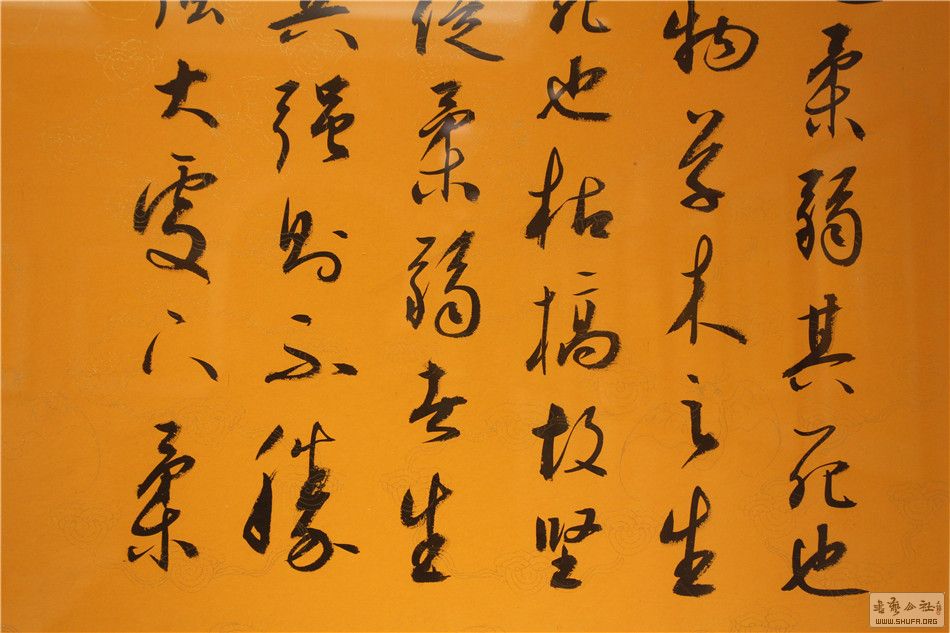 柔弱其死也
物草木之生
死也枯槁故坚
徒柔弱者生
兵强则不胜
强大处下柔
书艺公社
WWW.SHUFA.ORG